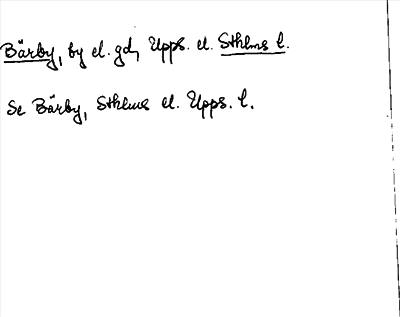 Bärby, by el. gd, Upps. el. Sthlms l.
Se Bärby, Sthlms el. Upps. l.